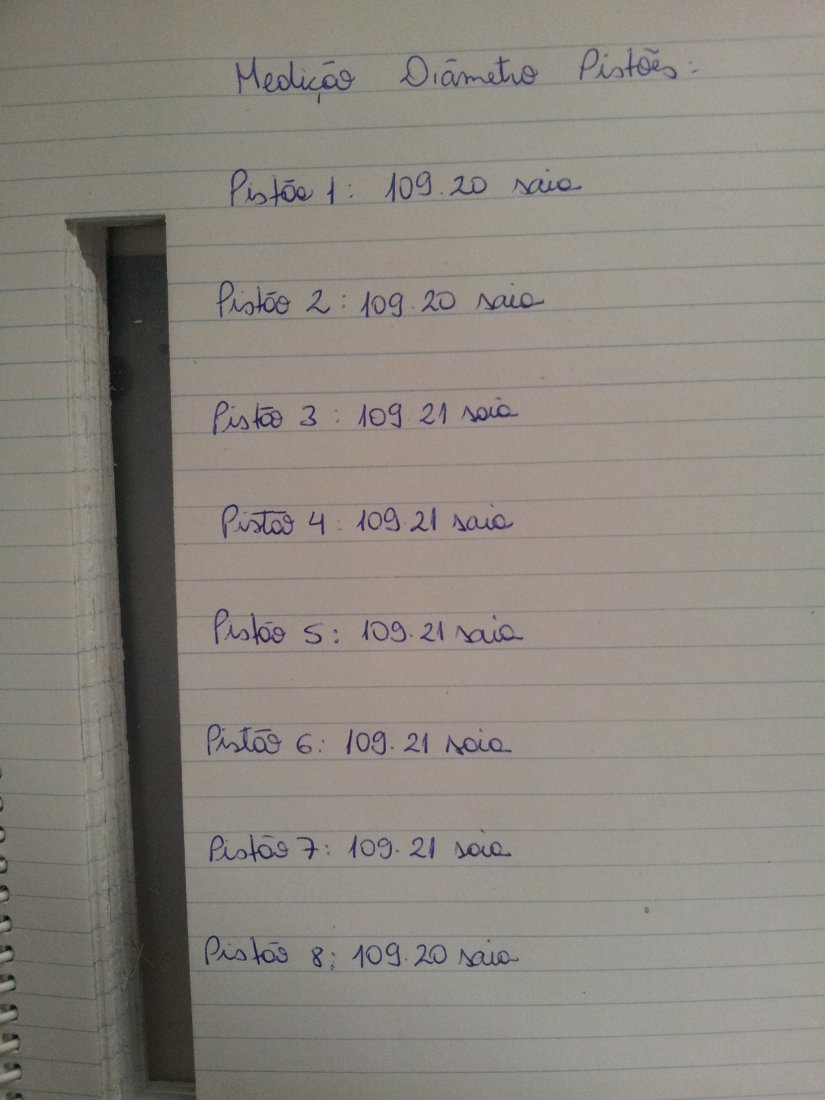 Medição Diâmetro Pistões:
Pistão 1: 109.20 saia
Pistão 2: 109.20 saia
Pistão 3: 109.21 saia
Pistão 4: 109.21 saia
Pistão 5: 109.21 saia
Pistão 6: 109.21 saia
Pistão 7: 109.21 saia
Pistão 8: 109.20 saia